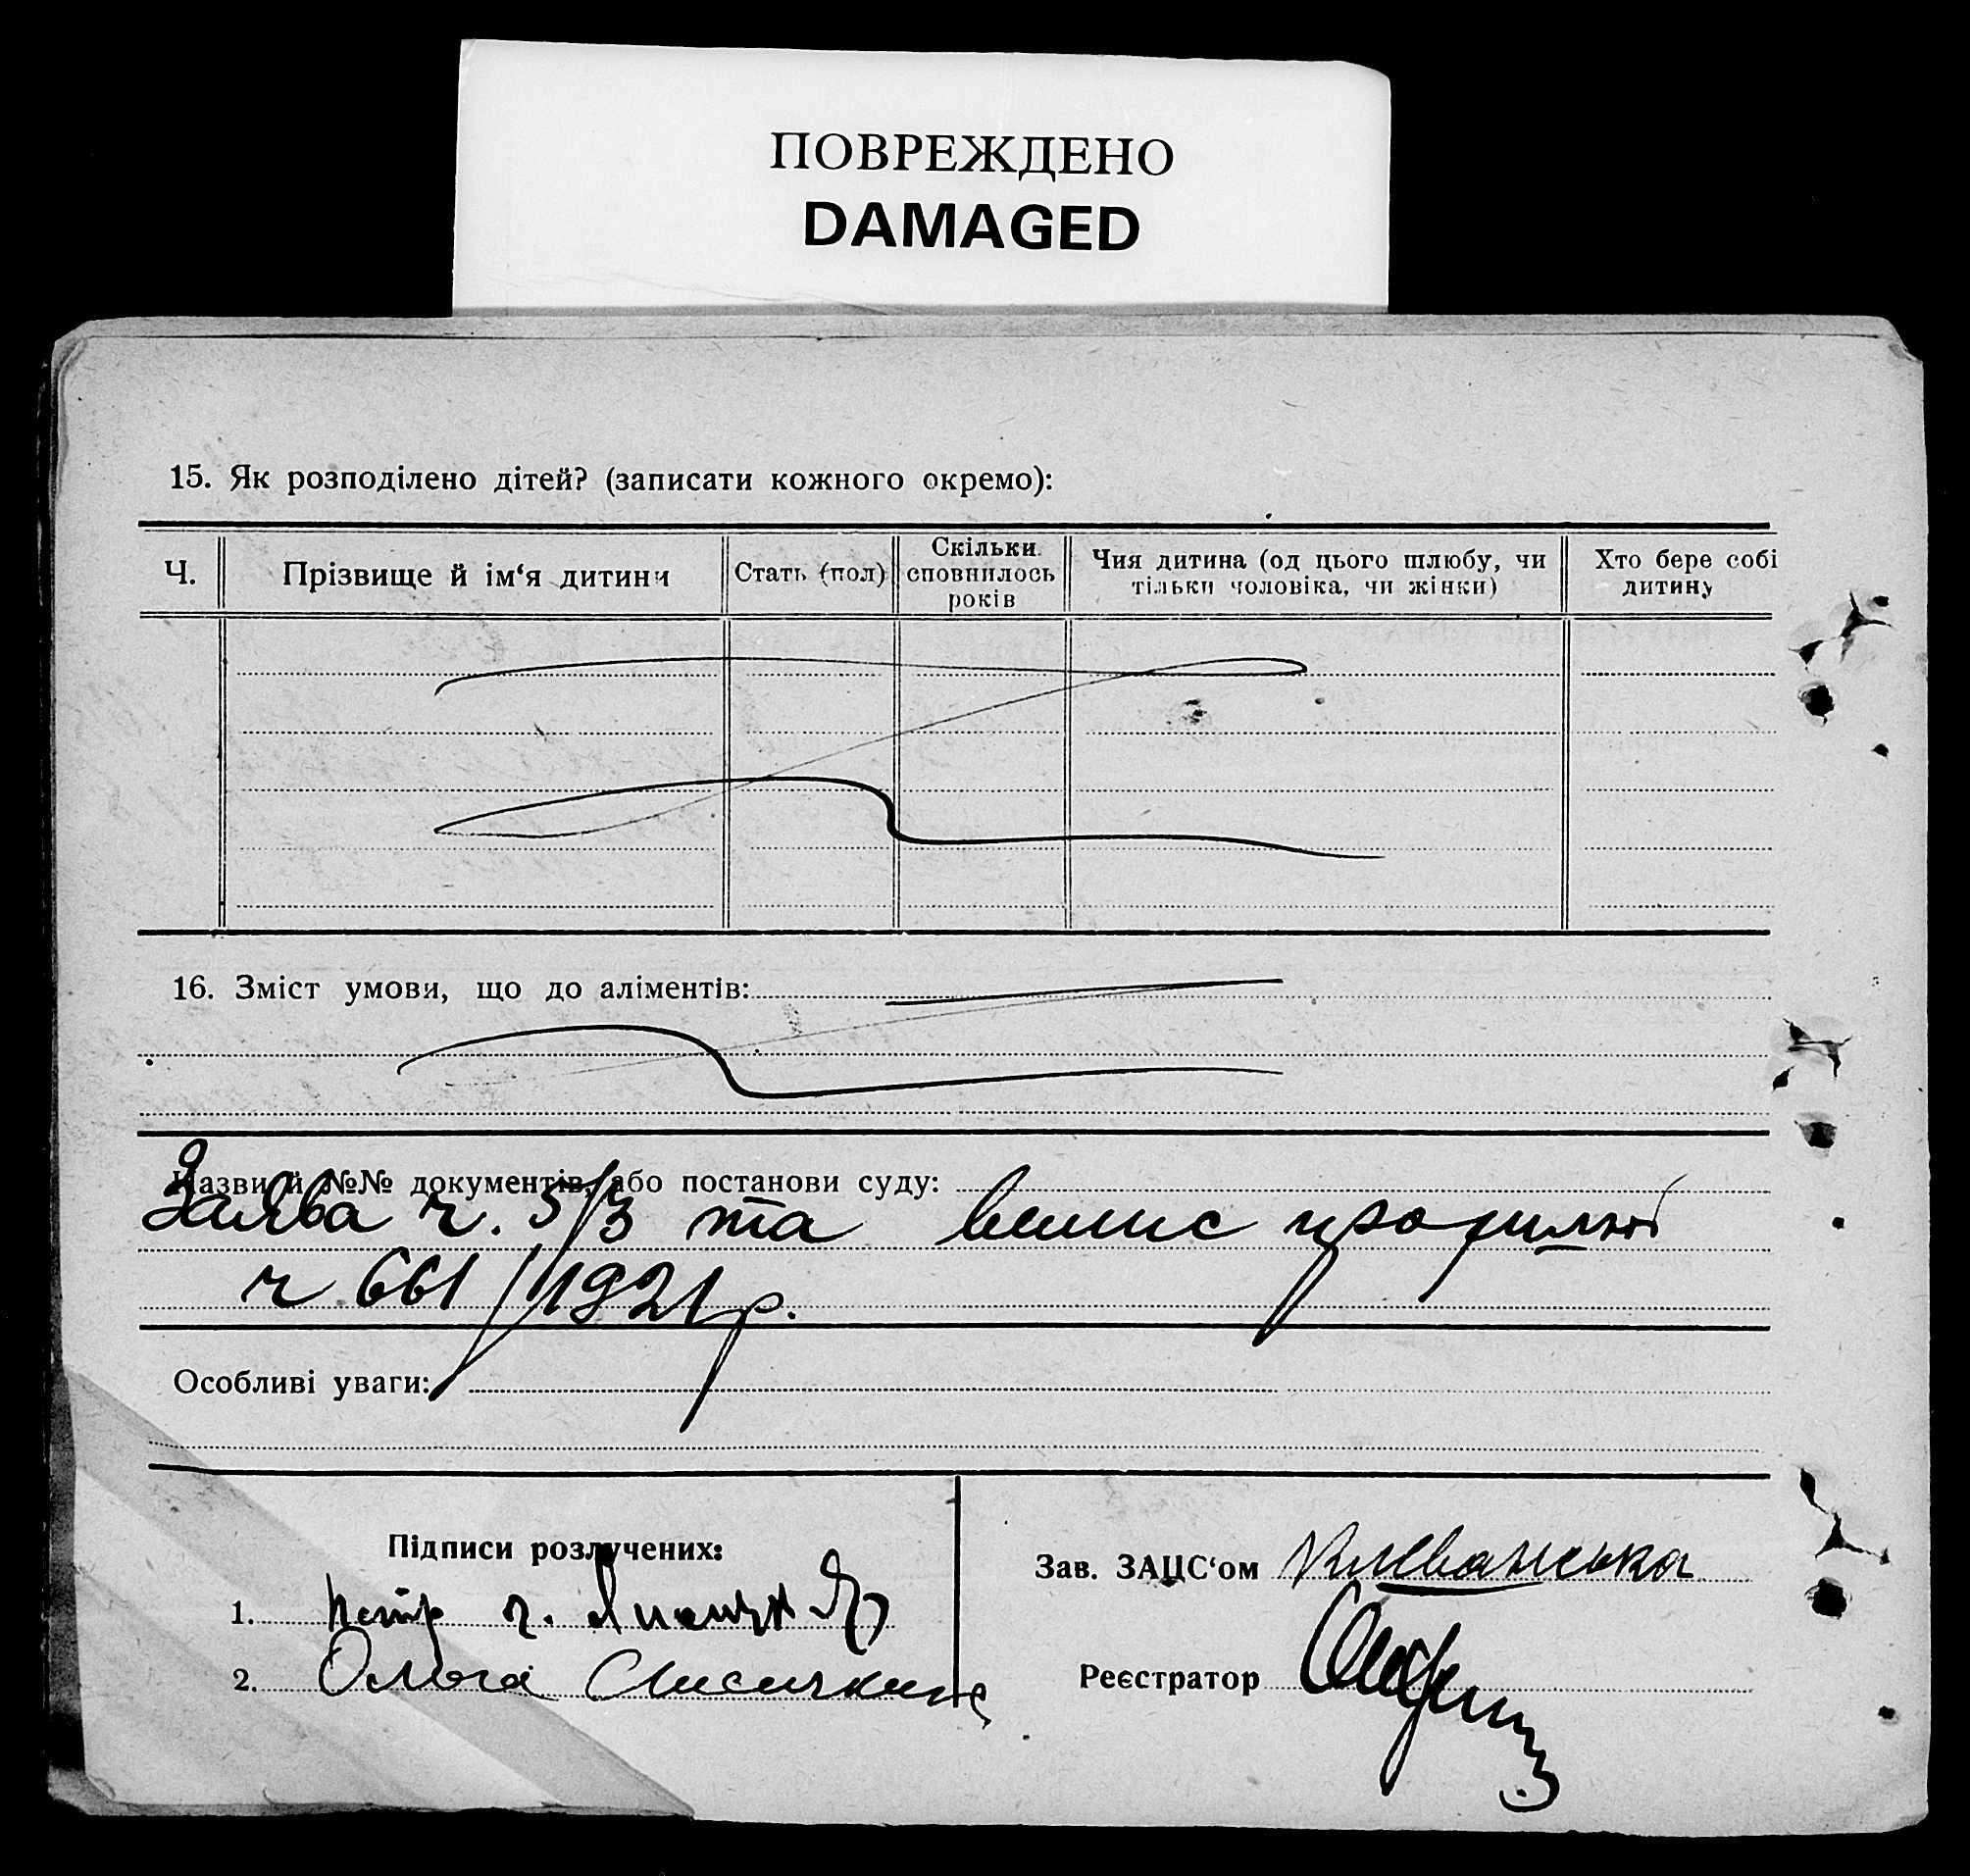 ПОВРЕЖДЕНО
DAMAGED
15. Як розподілено дітей? (записати кожного окремо):
Ч. Прізвище й ім‘я дитини Стать (пол) Скільки сповнилось років Чия дитина (од цього шлюбу, чи тільки чоловіка, чи жінки) Хто бере собі дитину
16. Зміст умови, що до аліментів:
Назви й №№ документів, або постанови суду:
Заява ч. 5/3 та
ч 661/1921 р.
Особливі уваги:
Підписи розлучених:
Зав. ЗАЦС‘ом
1. Петр
Реєстратор
2. Ольга Лисичкина